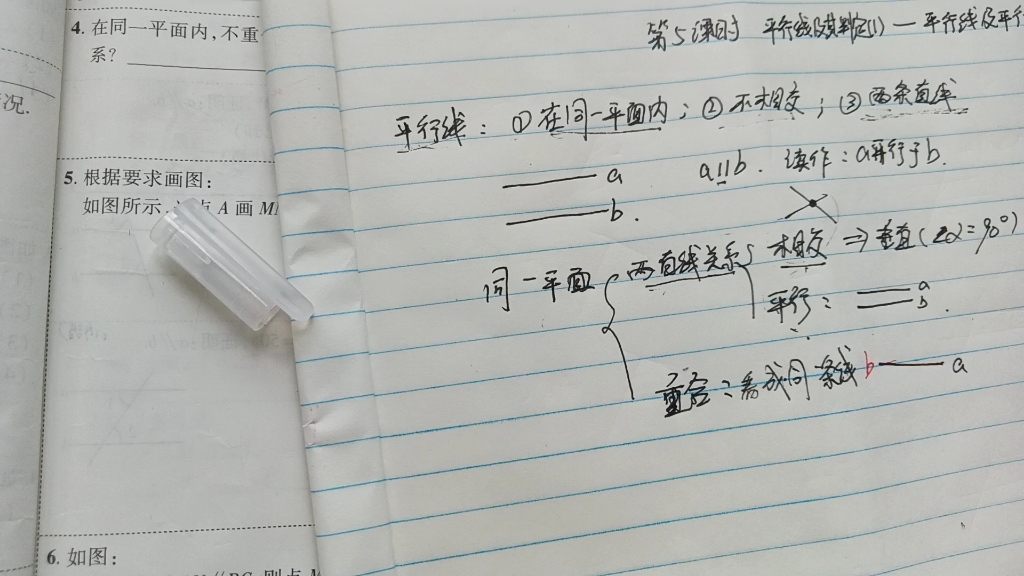 况.
4. 在同一平面内,不重
系?
5. 根据要求画图:
如图所示, 点 A 画 M
6. 如图:
第5课时 平行线及其判定(1) — 平行线及平行
平行线: ①在同一平面内; ②不相交; ③两条直线
a∥b. 读作: a平行于b.
a
b.
同一平面 两直线关系 相交 ⇒ 垂直(∠α=90°)
平行: a
b.
重合: 看成同一条线 b a